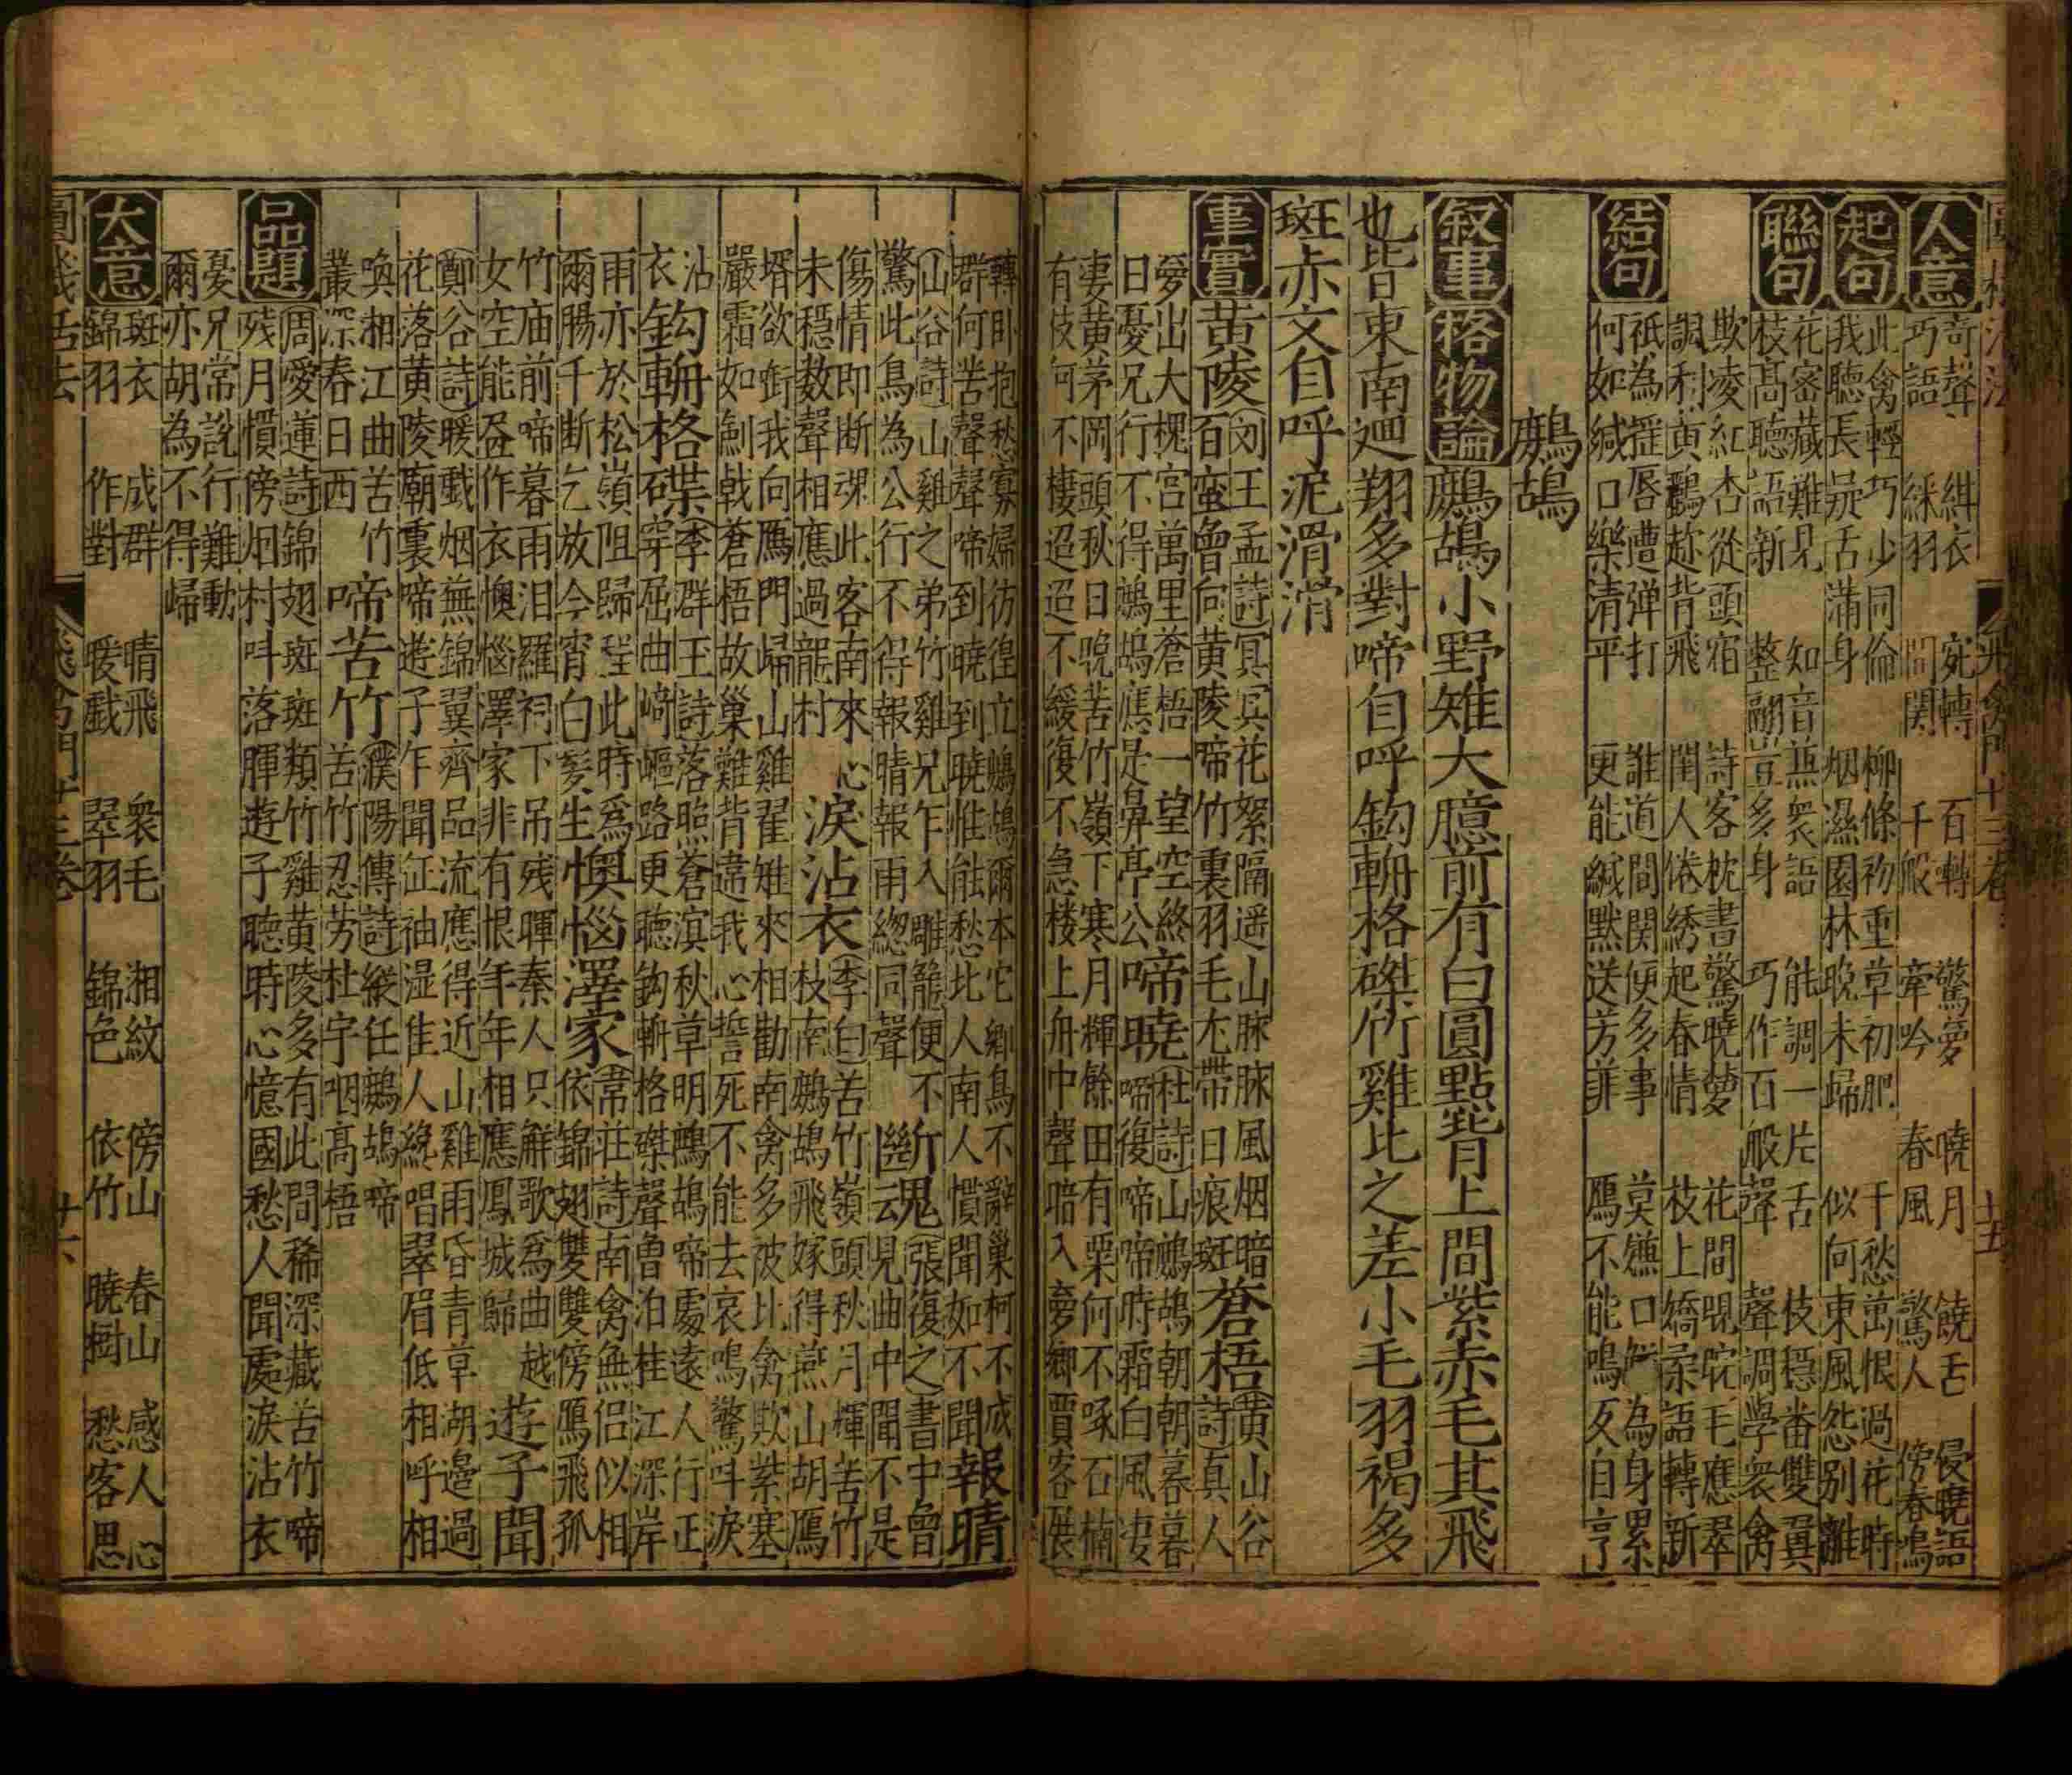 人意
奇聲 緋衣 宛轉 百轉 驚夢 曉月 饒舌 侵曉語
巧語 綵羽 間関 千般 牽吟 春風 驚人 傍春鳴
起句
此禽輕巧少同倫 柳條初重草初肥 千愁萬恨過花時
我聽長是舌滿身 烟濕園林晚未歸 似向東風怨別離
聯句
花密藏難見 知音兼衆語 能調一片舌 伎穩畨雙翼
枝髙聽語新 整翮豈多身 巧作百般聲 聲調學衆禽
欺凌紅杏從頭宿 詩客枕書驚曉夢 花間睍睆毛應翠
諷利黄鸝趂背飛 閨人倦綉起春情 枝上嬌柔語轉新
結句
祇為羅唇遭弹打 誰道間関便多事 莫嫌口觜為身累
何如緘口樂清平 更能緘默送芳菲 鴈不能鳴反自亨
鷓鴣
叙事 格物論 鷓鴣小野雉大臆前有白圓點背上間紫赤毛其飛
也皆東南廽翔多對啼自呼鈎輈格磔竹雞比之差小毛羽褐多
斑赤文自呼泥滑滑
事實 黄陵
閔王孟詩冥冥花絮隔遥山脉脉風烟暗
百蛮曾向黄陵啼竹裏羽毛尤帶日痕斑
蒼梧
黄山谷
詩真人
夢出大槐宫萬里蒼梧一望空終
日憂兄行不得鷓鴣應是鼻亭公
啼曉
杜詩山鷓鴣朝朝暮暮
啼復啼啼時霜白風凄
妻黄茅岡頭秋日晚苦竹嶺下寒月輝餘田有粟何不啄石楠
有伎何不棲迢迢不緩復不急楼上舟中聲暗入夢鄉賈客展
轉卧抱愁寡婦彷徨立鷓鴣爾本它鄉鳥不辭巢柯不成
群何苦聲聲啼到曉到曉惟能愁比人南人慣聞如不聞
報晴
山谷詩山雞之弟竹雞兄乍入雕籠便不
驚此鳥為公行不得報晴報雨緫同聲
斷魂
張復之書中曾
云見曲中聞不是
傷情即断魂此客南來心
未穩数聲相應過龍村
淚沾衣
李白苦竹嶺頭秋月輝苦竹
枝南鷓鴣飛嫁得燕山胡鴈
壻欲銜我向鴈門歸山雞翟雉來相勸南禽多被比禽欺紫塞
嚴霜如劍戟蒼梧故巢難背違我心誓死不能去哀鳴驚叫淚
沾
衣
鈎輈格磔
李群玉詩落照蒼滨秋草明鷓鴣啼處遠人行正
穿屈曲崎嶇路更聴鈎輈格磔聲魯泊桂江深岸
雨亦於松嶺阻歸程此時爲
爾腸千断乞放今宵白髮生
懊惱澤家
常荘詩南禽無侣似相
依錦翅雙雙傍鴈飛孤
竹庙前啼暮雨泪羅祠下吊残暉秦人只解歌爲曲越
女空能盈作衣懊惱澤家非有恨年年相應鳳城歸
遊子聞
鄭谷詩暖戲烟蕪錦翼齊品流應得近山雞雨昏青草湖邊過
花落黄陵廟裏啼遊子乍聞征袖湿佳人纔唱翠眉低相呼相
喚湘江曲苦竹
叢深春日西
啼苦竹
濮陽傳詩縦任鷓鴣啼
苦竹忍芳杜宇咽髙梧
品題
周愛蓮詩錦翅斑斑類竹雞黄陵多有此間稀深藏苦竹啼
残月慣傍烟村叫落暉遊子聽時心憶國愁人聞處淚沾衣
憂兄常說行難動
爾亦胡為不得歸
大意
斑衣 成群 晴飛 衆毛 湘紋 傍山 春山 感人心
錦羽 作對 暖戲 翠羽 錦色 依竹 曉樹 愁客思